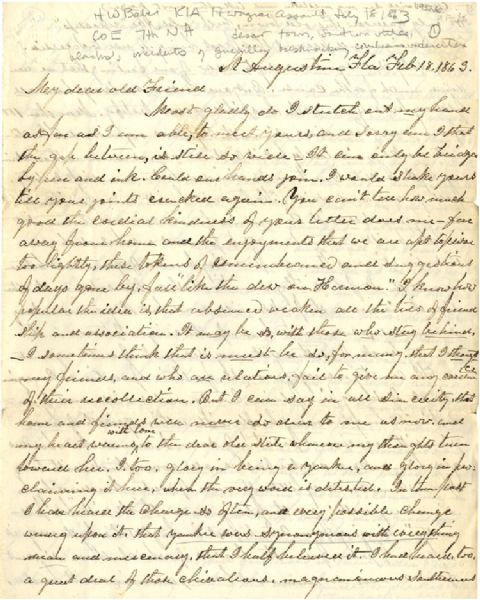 H W Baker KIA Ft Wagner Assault July 18, 63
Co E 7th N.H.
St Augustine Fla Feb. 18. 1863.
My dear old Friend
Most gladly do I stretch out my hand
as far as I am able, to meet yours, and sorry am I that
the gap between, is still so wide - It can only be bridged
by pen and ink. Could our hands join, I would shake yours
till your joints cracked again. You can't tell how much
good the cordial kindness of your letter does me - far
away from home and the enjoyments that we are apt to prize
too lightly, these tokens of remembrance and suggestions
of days gone by, fall "like the dew on Hermon" I know how
popular the idea is that absence weakens all the ties of friend
ship and association. It may be so, with those who stay behind,
- I sometimes think that it must be so, for many, that I thought
my friends, and who are relations, fail to give me any
of their recollection. But I can say in all sincerity, that
home and friends were never so dear to me as now, and
my heart warms with love to the dear old State whenever my thoughts turn
toward her. I, too, glory in being a Yankee, and glory in pro-
claiming it here, where the very word is detested. In times past
I have heard the charge so often, and every possible change
rung upon it, that Yankee was synonymous with everything
mean and mercenary, that I half believed it. I had heard, too,
a great deal of those chivalrous, magnanimous Southerners